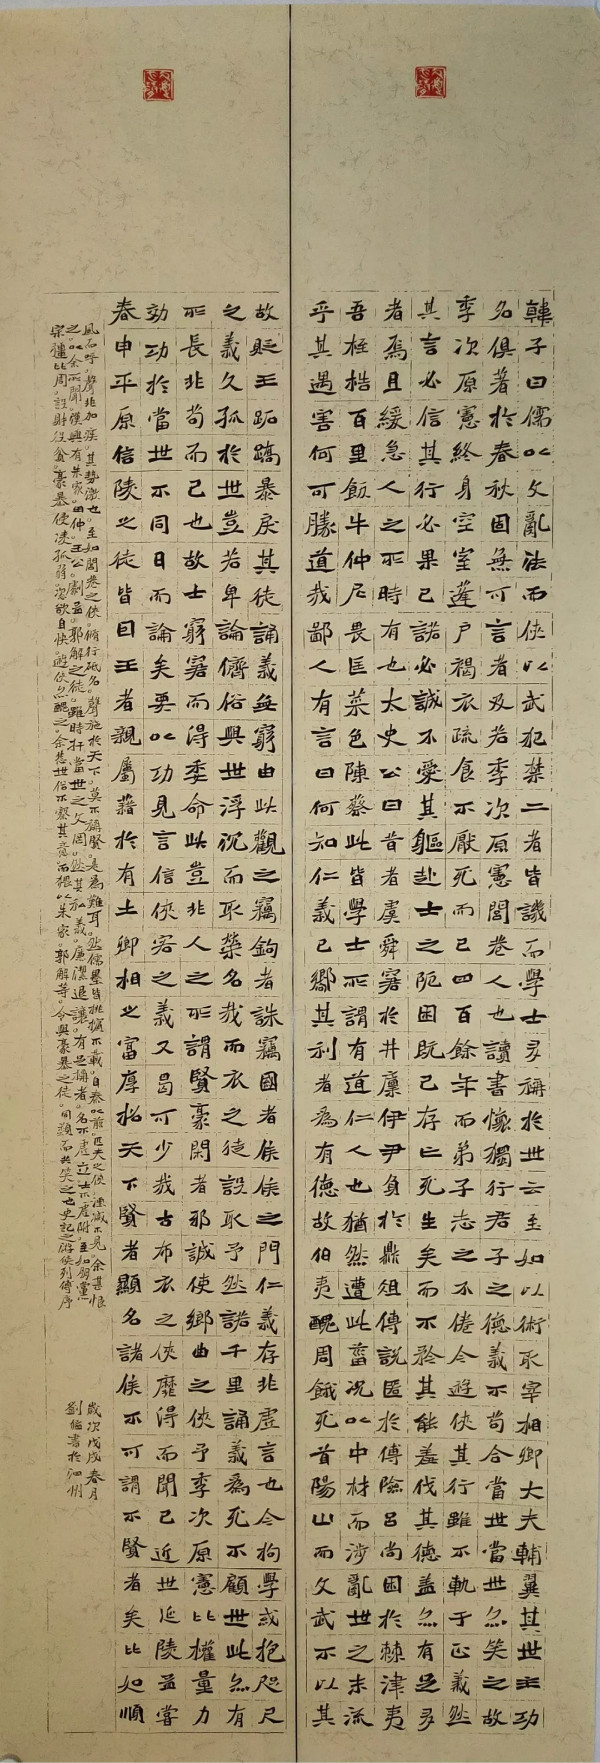 韓子曰儒以文亂法而俠以武犯禁二者皆譏而學士多稱於世云至如以術取宰相卿大夫輔翼其世主功
名俱著於春秋固無可言者及若季次原憲閭巷人也讀書懷獨行君子之德義不苟合當世當世亦笑之故
季次原憲終身空室蓬戶褐衣疏食不厭死而已四百餘年而弟子志之不倦今遊俠其行雖不軌于正義然
其言必信其行必果已諾必誠不愛其軀赴士之阨困既已存亡死生矣而不矜其能羞伐其德蓋亦有足多
者焉且緩急人之所時有也太史公曰昔者虞舜窘於井廩伊尹負於鼎俎傳說匿於傅險呂尚困於棘津夷
吾桎梏百里飯牛仲尼畏匡菜色陳蔡此皆學士所謂有道仁人也猶然遭此菑況以中材而涉亂世之末流
乎其遇害何可勝道哉鄙人有言曰何知仁義已嚮其利者為有德故伯夷醜周餓死首陽山而文武不以其
故貶王跖蹻暴戾其徒誦義無窮由此觀之竊鉤者誅竊國者侯侯之門仁義存非虛言也今拘學或抱咫尺
之義久孤於世豈若卑論儕俗與世浮沉而取榮名哉而衣之徒設取予然諾千里誦義為死不顧世此亦有
所長非苟而已也故士窮窘而得委命此豈非人之所謂賢豪閒者邪誠使鄉曲之俠予季次原憲比權量力
効功於當世不同日而論矣要以功見言信俠客之義又曷可少哉古布衣之俠靡得而聞已近世延陵孟嘗
春申平原信陵之徒皆因王者親屬藉於有土卿相之富厚招天下賢者顯名諸侯不可謂不賢者矣比如順
風而呼。聲非加疾。其勢激也。至如閭巷之俠。脩行砥名。聲施於天下。莫不稱賢。是為難耳。然儒墨皆排擯不載。自秦以前。匹夫之俠。湮滅不見。余甚恨
之。以余所聞。漢興有朱家。田仲。王公。劇孟。郭解之徒。雖時扞當世之文罔。然其私義。廉潔退讓。有足稱者。名不虛立。士不虛附。至如朋黨
宗彊比周。設財役貧。豪暴侵凌孤弱。恣欲自快。遊俠亦醜之。余悲世俗不察其意。而猥以朱家。郭解等。令與豪暴之徒。同類而共笑之也史記之游俠列傳序
歲次戊戌春月
劉 書於泗州